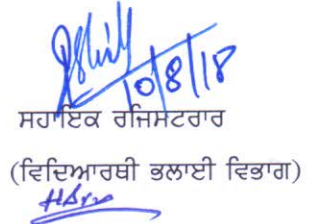 10/8/18
ਸਹਾਇਕ ਰਜਿਸਟਰਾਰ
(ਵਿਦਿਆਰਥੀ ਭਲਾਈ ਵਿਭਾਗ)